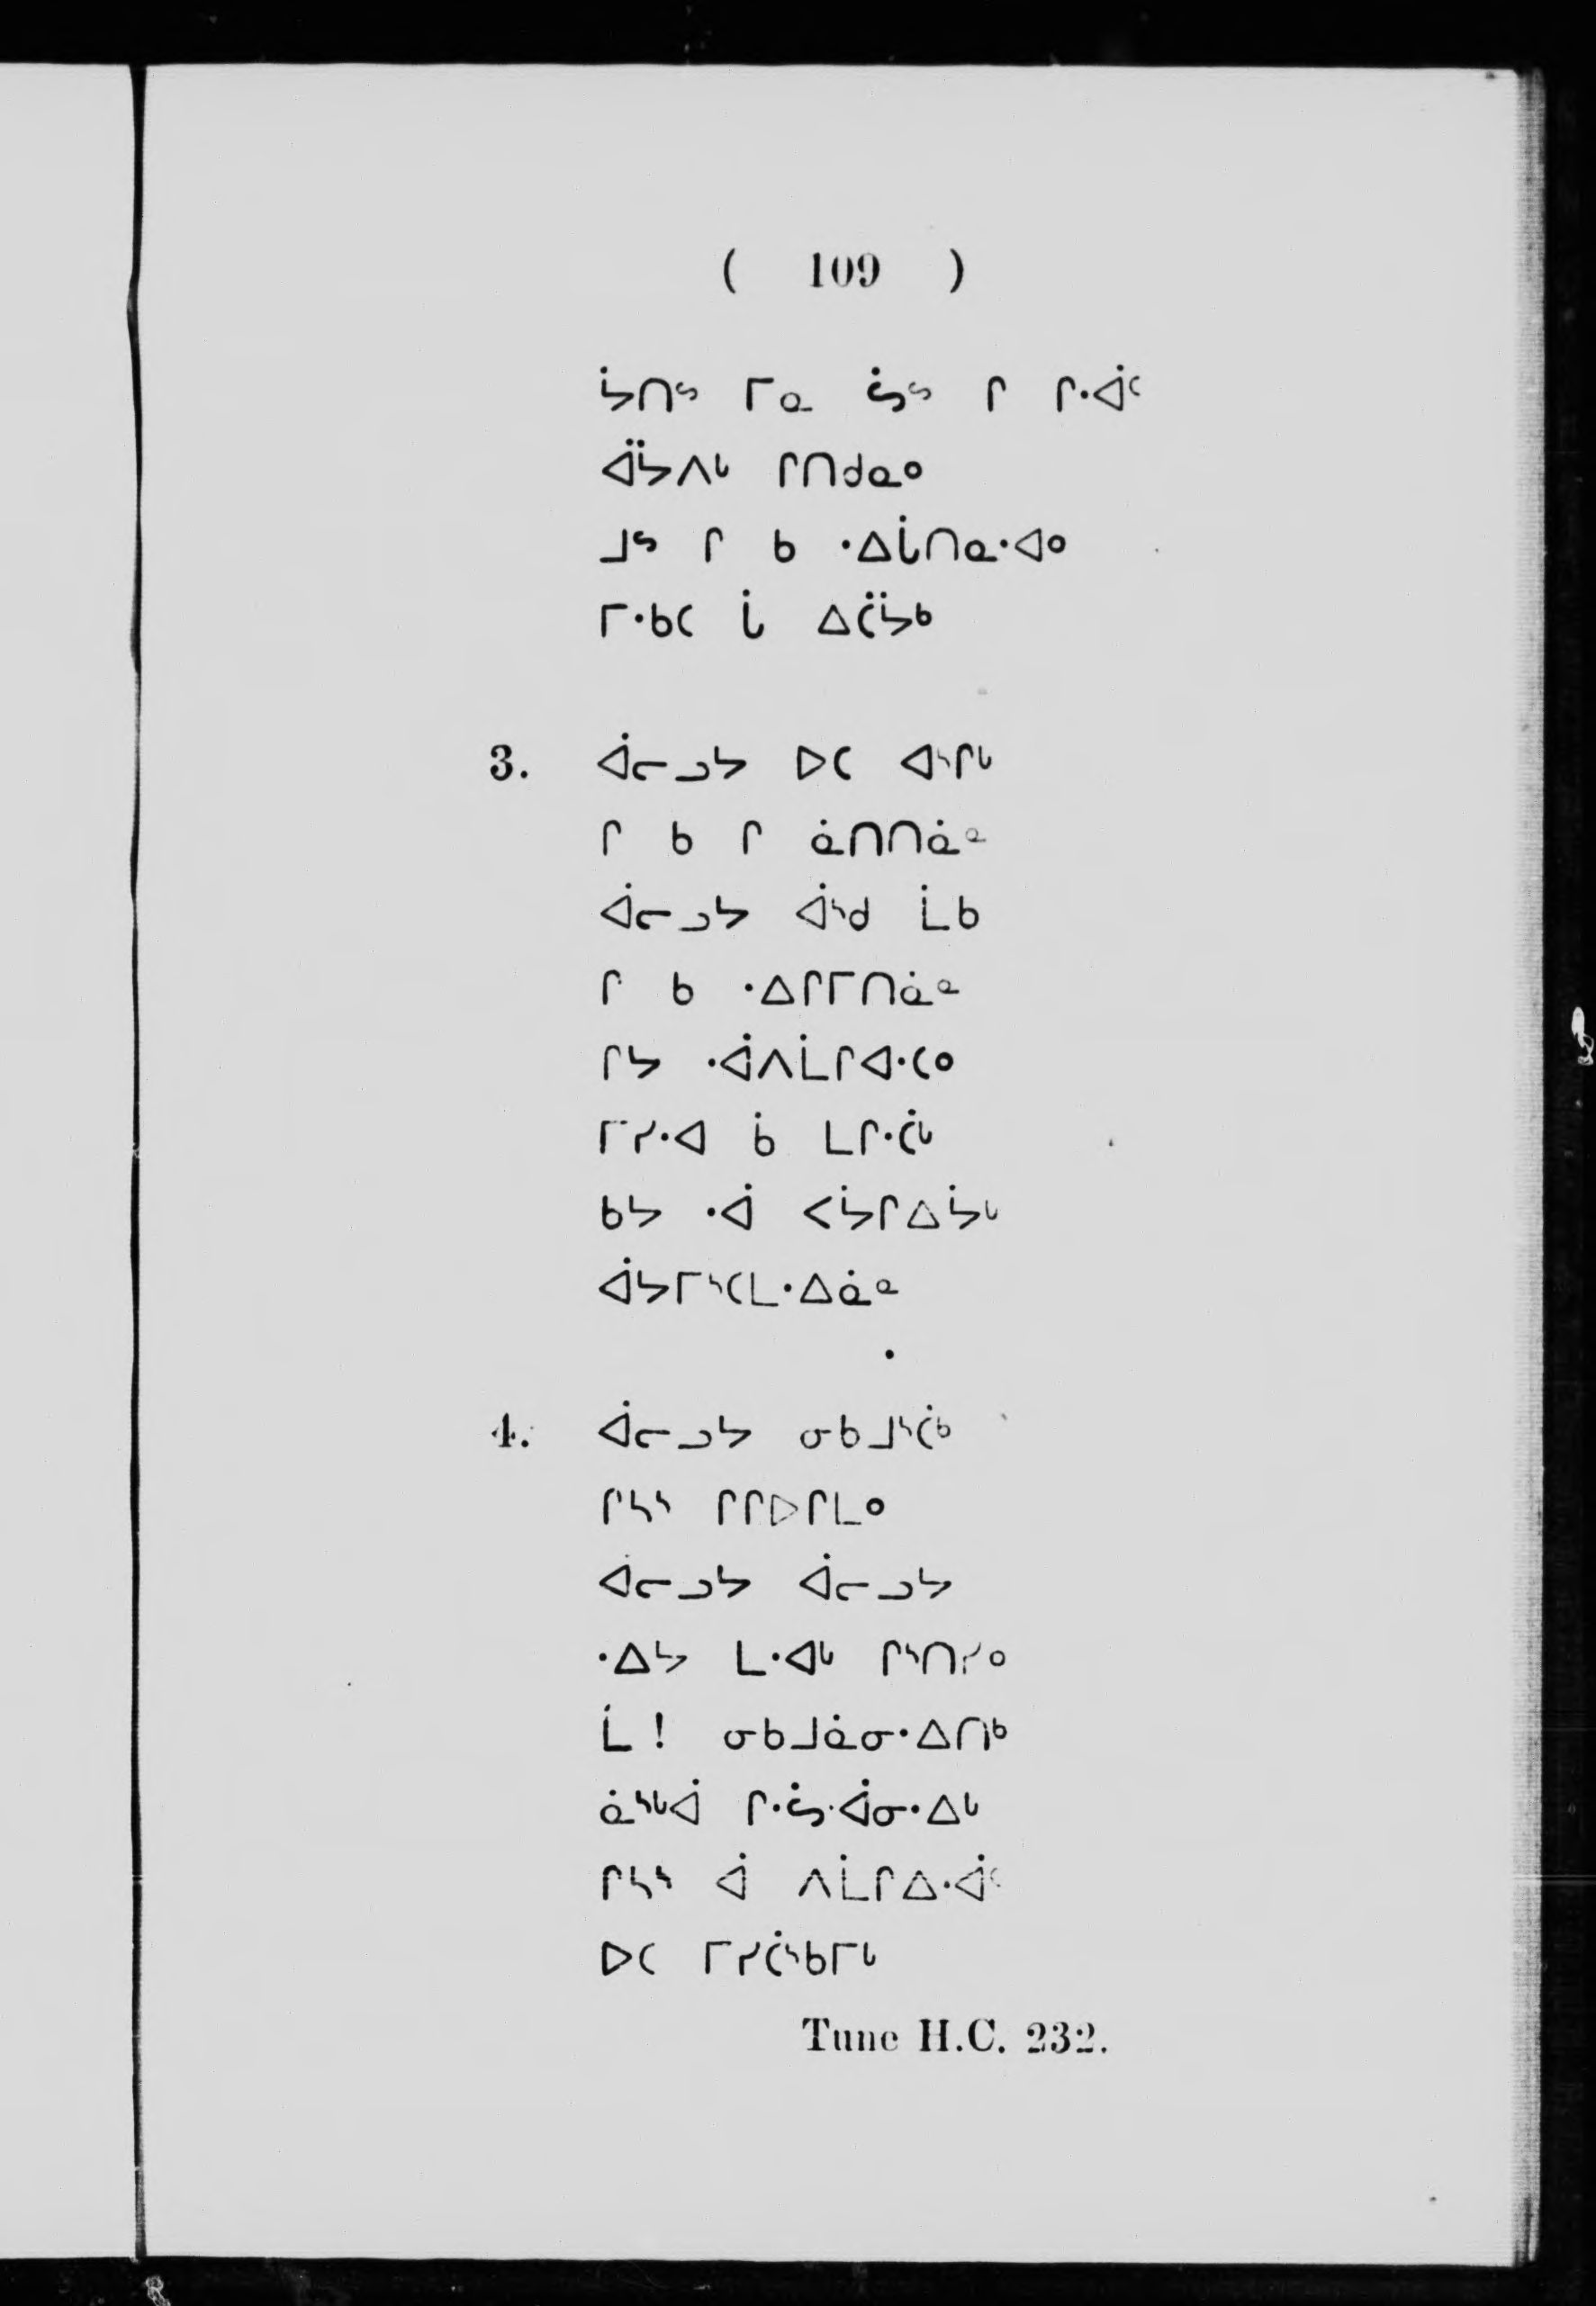 ( 109 )
ᔮᑎᔥ ᒥᓇ ᔖᔥ ᒋ ᒋᐧᐋᑦ
ᐋᔮᐱᒡ ᒋᑎᑯᓇᐤ
ᒧᔥ ᒋ ᑲ ᐧᐃᒑᑎᓇᐧᐊᐤ
ᒥᐧᑲᑕ ᒑ ᐃᑖᔮᒃ
3. ᐋᓕᓗᔭ ᐅᑕ ᐊᔅᒋᒡ
ᒋ ᑲ ᒋ ᓈᑎᑎᓈᓐ
ᐋᓕᓗᔭ ᐋᔅᑯ ᒫᑲ
ᒋ ᑲ ᐧᐃᒋᒥᑎᓈᓐ
ᒋᔭ ᐧᐋᐱᒫᒋᐊᐧᑕᐤ
ᒥᓯᐧᐊ ᑳ ᒪᒋᐧᑖᒡ
ᑲᔭ ᐧᐋ ᐸᔮᒋᐃᔮᒡ
ᐋᔭᒥᔅᑕᒪᐧᐃᓈᓐ
4. ᐋᓕᓗᔭ ᓂᑲᒧᔅᑖᒃ
ᒋᓴᔅ ᒋᒋᐅᒋᒪᐤ
ᐋᓕᓗᔭ ᐋᓕᓗᔭ
ᐧᐃᔭ ᒪᐧᐊᒡ ᒋᔅᑎᓯᐤ
ᒫ ! ᓂᑲᒧᓈᓂᐧᐃᑎᒃ
ᓈᔅᒡᐋ ᒋᐧᔖᐧᐋᓂᐧᐃᒡ
ᒋᓴᔅ ᐋ ᐱᒫᒋᐃᐧᐋᑦ
ᐅᑕ ᒥᓯᑖᔅᑲᒥᒡ
Tune H.C. 232.